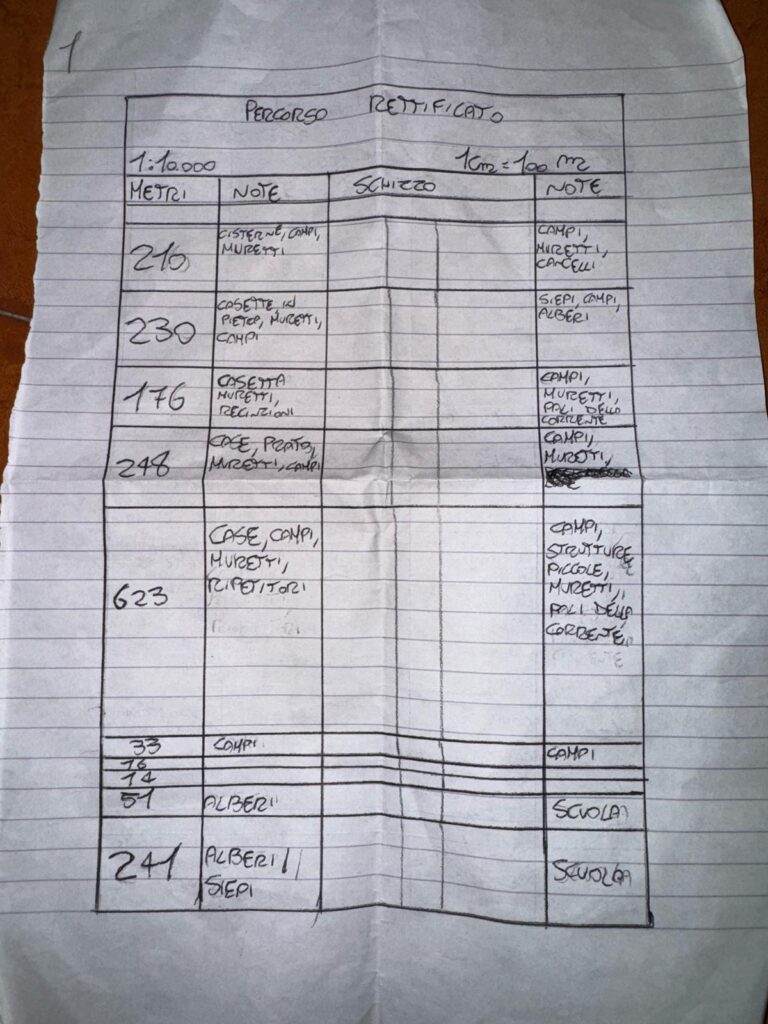 1
PERCORSO RETTIFICATO
1:10.000 1cm = 100 m
METRI NOTE SCHIZZO NOTE
210
CISTERNE, CAMPI,
MURETTI
CAMPI,
MURETTI,
CANCELLI
230
CASETTE IN
PIETRA, MURETTI,
CAMPI
SIEPI, CAMPI,
ALBERI
176
CASETTA
MURETTI,
RECINZIONI
CAMPI,
MURETTI,
PALI DELLA
CORRENTE
248
CASE, PRATO,
MURETTI, CAMPI
CAMPI,
MURETTI,
623
CASE, CAMPI,
MURETTI,
RIPETITORI
CAMPI,
STRUTTURE
PICCOLE,
MURETTI,
PALI DELLA
CORRENTE
33 CAMPI CAMPI
16
14
51 ALBERI SCUOLA
241
ALBERI
SIEPI
SCUOLA